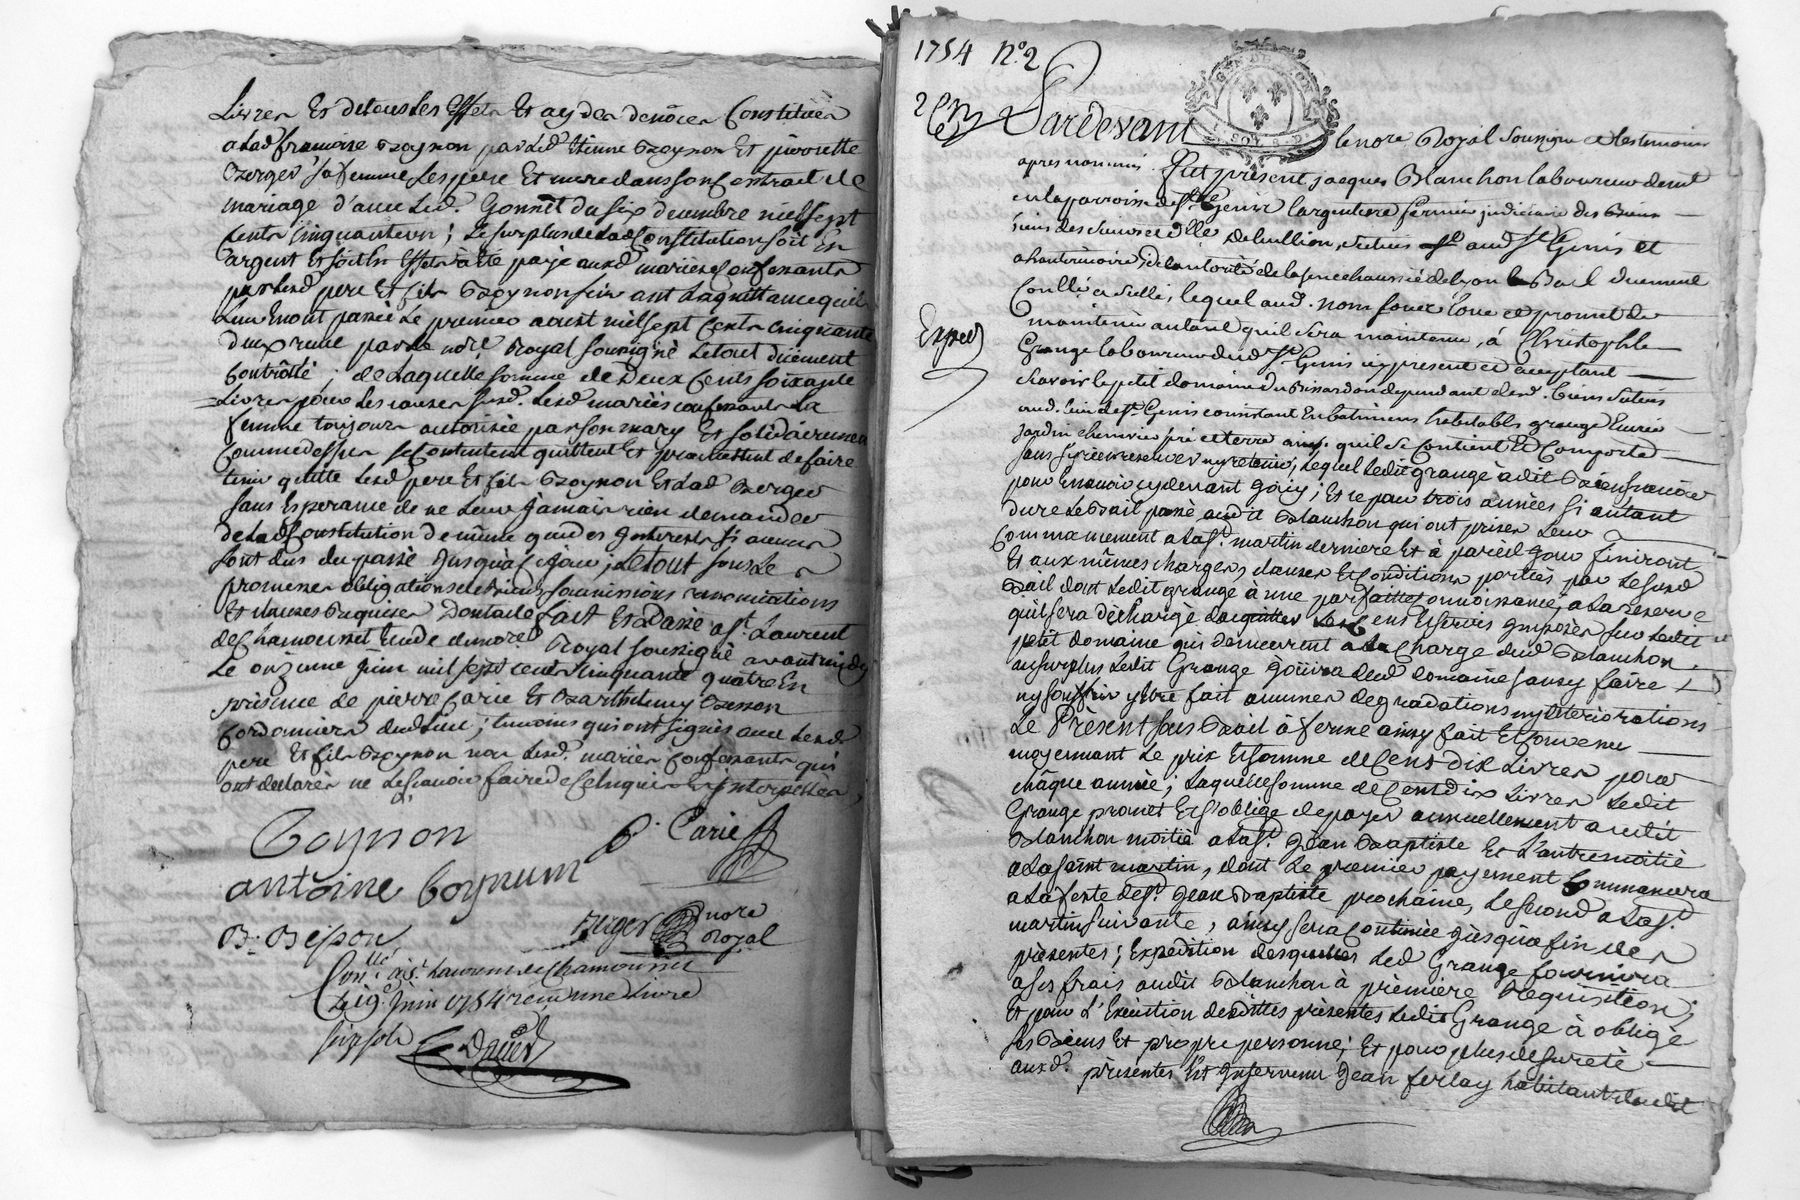 Livres Et de tous les Effets Et aydes de nôces Constitués
a lad francoise Goynon par led Etienne Goynon Et pierrette
Berger sa femme, ses pere Et mere dans son Contract de
mariage d'avec led. Gonnet du six decembre mil sept
Cents Cinquante un; le surplus de lad Constitution soit En
argent Et soit En Effets a été payé auxd mariés Confessants
par lesd pere Et fils Goynon suivant la quittance qu'ils
leur En ont passé le premier aoust mil sept Cents Cinquante
deux reçue par le nore Royal soussigné le tout düement
Contrôllé; de laquelle somme de Deux Cents soixante
Livres pour les causes susd. lesd mariés confessants la
femme toujours authorisée par son mary Et solidairement
Comme dessus se Contentent quittent Et promettent de faire
tenir quitte lesd pere Et fils Goynon Et lad Berger
sans Esperance de ne leur jamais rien demander
de lad Constitution de même que des Interests si aucuns
sont dus du passé jusqu'à ce jour, le tout sous les
promesses obligations de biens soumissions renonciations
Et clauses Requises Dont acte fait Et Passé a st. Laurent
de Chamousset Etude du nore Royal soussigné avant midy
Le onzieme juin mil sept cents Cinquante quatre En
présence de pierre Carie Et Barthelemy Besson
Cordonniers dud lieu; temoins qui ont signés avec lesd
pere Et fils Goynon non lesd. mariés Confessants qui
ont declarés ne le scavoir faire de Ce Enquis Et Interpellés,
Goynon
P. Carie
antoine Goynum
B. Besson
Berger nore Royal
Conllé a st. Laurent de Chamousset
Le 19e juin 1754 recu une Livre
six sols
1754 No. 2
GEN DE LYON
2. SOLS. D.
Pardevant
le nore Royal soussigné et les temoins
apres nommés. fut présent jacques Blanchon laboureur demt
en la parroisse de st Genis l'argentiere fermier judiciaire des Biens
de Bullion, situés aud st. Genis et
de l'autorité de la senechaussée de Lyon le Bail duement
Conllé et scellé, lequel aud. nom sous Loue et promet de
maintenir autant qu'il sera maintenu, à Christophle
Grange laboureur dud st Genis icy present et acceptant
Exped
scavoir le petit domaine du Bissardon dependant desd. biens situés
aud. lieu de st. Genis consistant En batimens habitables grange Ecurie
jardin cheneviere pré et terre ainsy qu'il se Contient Et Comporte
sans s'y rien reserver ny retenir, lequel ledit Grange à dit Bien sçavoir
pour En avoir cy devant joüy; Et ce pour trois années si autant
dure le Bail passé audit Blanchon qui ont prises leur
Commancement a la st. martin derniere Et à pareil jour finiront
Et aux mêmes charges, clauses Et Conditions portées par le susd
Bail dont ledit Grange à une parfaitte Connoissance, a la reserve
qu'il sera déchargé d'acquitter les Cens Et servis Imposés sur ledit
petit domaine qui demeurent a la Charge dud Blanchon.
au surplus ledit Grange joüira dud domaine sans y faire
ny souffrir y être fait aucunes degradations ny deteriorations
Le Présent sous Bail à ferme ainsy fait Et Convenu
moyennant le prix Et somme de Cent dix Livres pour
châque année; Laquelle somme de Cent dix Livres ledit
Grange promet Et s'oblige de payer annuellement audit
Blanchon moitié a la st. Jean Baptiste Et l'autre moitié
a la saint martin, dont le premier payement Commancera
a la feste de st. Jean Baptiste prochaine, le second a la st.
martin suivante, ainsy sera Continué jusqu'a fin des
présentes; Expedition desquelles led Grange fournira
a ses frais audit Blanchon à première Requisition;
Et pour l'Exécution desdittes présentes ledit Grange à obligé
ses Biens Et propre personne; Et pour plus de sureté
auxd. présentes Est Intervenu Jean ferlay habitant dudit